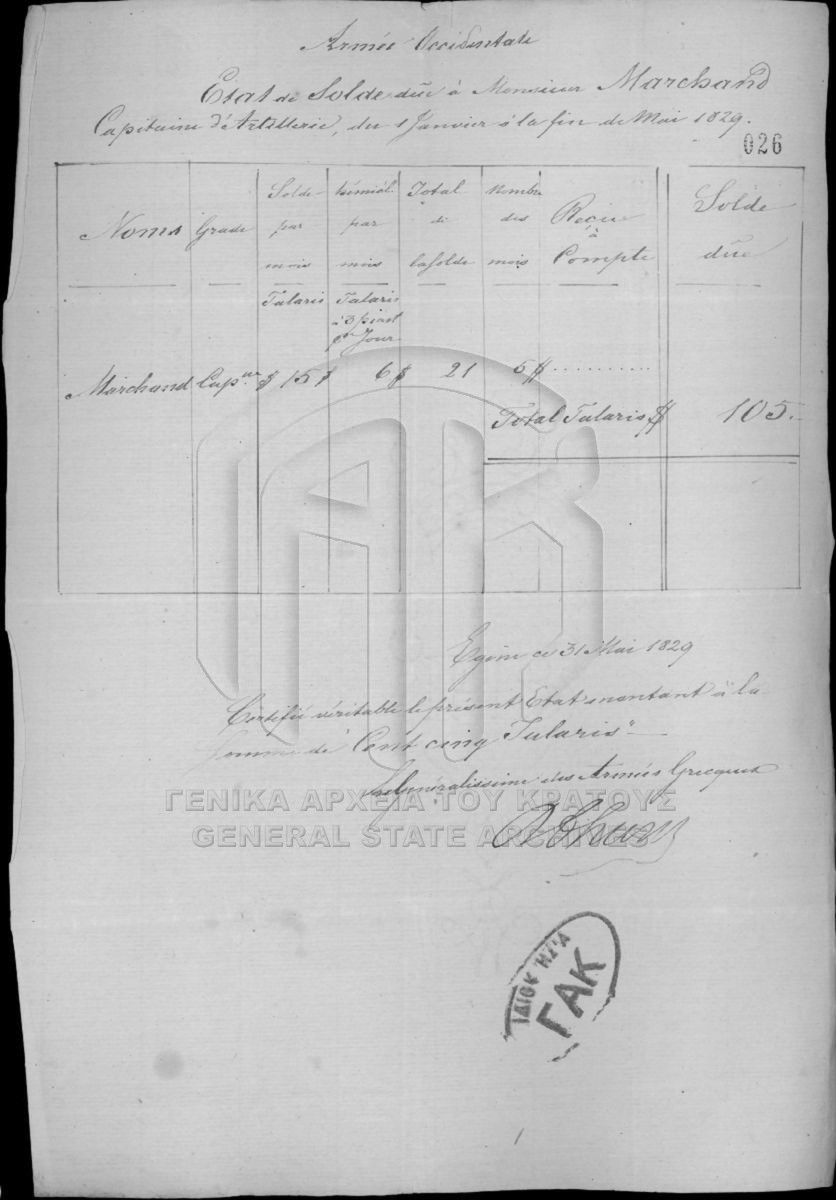 Armée Occidentale
Etat de Solde due à Monsieur Marchand
Capitaine d'Artillerie, du 1 Janvier à la fin de Mai 1829.
026
Noms
Grade
Solde
par
mois
par
mois
Total
de
la Solde
Nombre
des
mois
Reçue
à
Compte
Solde
due
Talaris
Talaris
à 3 piast
pr Jour
Marchand Capne $ 15 $ 6 $ 21 5 $ ..........
Total Talaris $ 105.
Egine ce 31 Mai 1829
Certifié véritable le présent Etat montant à la
somme de Cent cinq Talaris
Le Généralissime des Armées Grecques
ΓΕΝΙΚΑ ΑΡΧΕΙΑ ΤΟΥ ΚΡΑΤΟΥΣ
GENERAL STATE ARCHIVES
ΓΑΚ